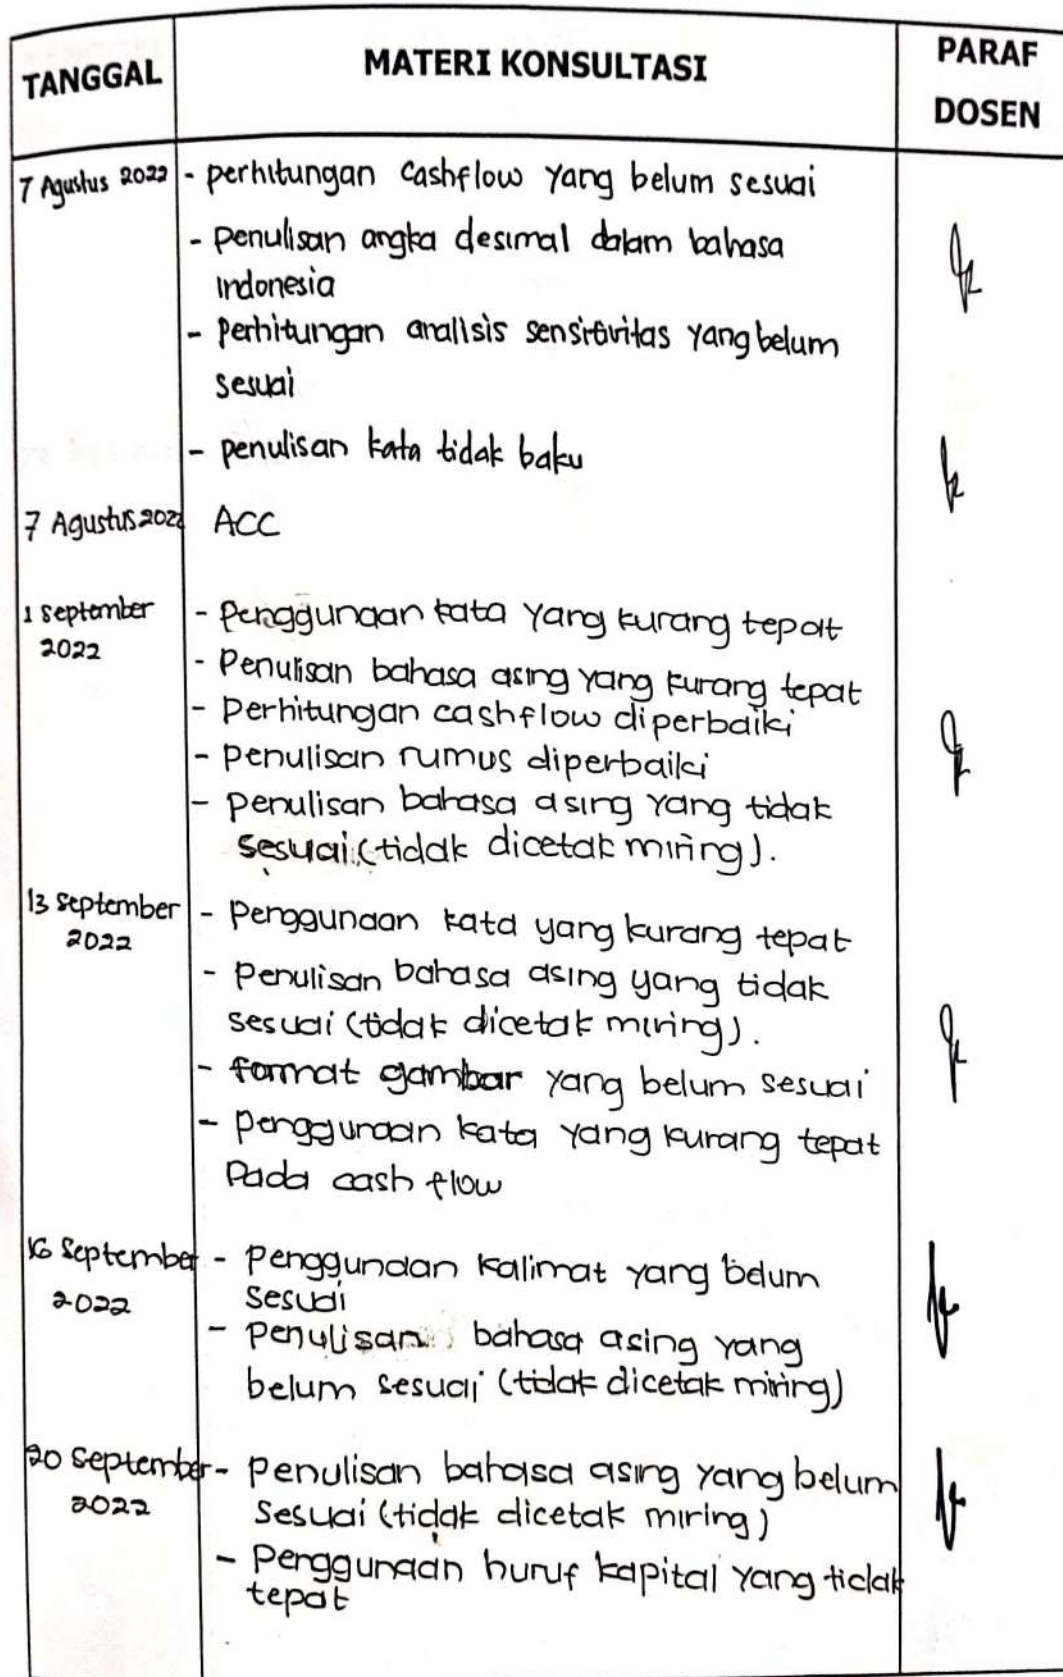 TANGGAL
MATERI KONSULTASI
PARAF
DOSEN
7 Agustus 2022
- perhitungan cashflow yang belum sesuai
- penulisan angka desimal dalam bahasa
indonesia
- perhitungan analisis sensitivitas yang belum
sesuai
- penulisan kata tidak baku
7 Agustus 2022
ACC
1 september
2022
- penggunaan kata yang kurang tepat
- Penulisan bahasa asing yang kurang tepat
- perhitungan cashflow diperbaiki
- penulisan rumus diperbaiki
- penulisan bahasa asing yang tidak
sesuai (tidak dicetak miring).
13 september
2022
- penggunaan kata yang kurang tepat
- penulisan bahasa asing yang tidak
sesuai (tidak dicetak miring).
- format gambar yang belum sesuai
- penggunaan kata yang kurang tepat
pada cash flow
16 September
2022
- penggunaan kalimat yang belum
sesuai
- penulisan bahasa asing yang
belum sesuai (tidak dicetak miring)
20 September
2022
- penulisan bahasa asing yang belum
sesuai (tidak dicetak miring)
- penggunaan huruf kapital yang tidak
tepat